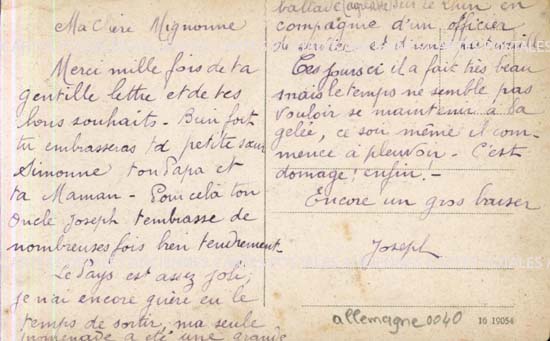 Ma Chère Mignonne
Merci mille fois de ta
gentille lettre et de tes
bons souhaits - Bien fort
tu embrasseras ta petite sœur
Simonne ton Papa et
ta Maman - Pour cela ton
Oncle Joseph t'embrasse de
nombreuses fois bien tendrement -
Le Pays est assez joli;
je n'ai encore guère eu le
temps de sortir, ma seule
promenade a été une grande
ballade agréable sur le Rhin en
compagnie d'un officier
de
Ces jours ci il a fait très beau
mais le temps ne semble pas
vouloir se maintenir à la
gelée, ce soir même il com-
mence à pleuvoir - C'est
domage! enfin. -
Encore un gros baiser
Joseph
allemagne 0040
16 19054